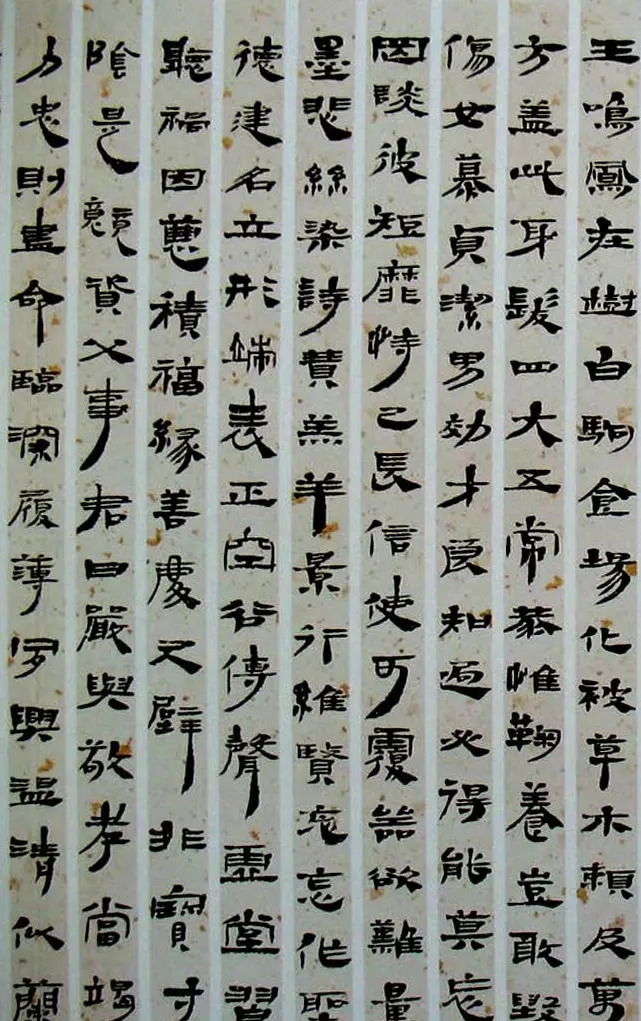 王鳴鳳在樹白駒食場化被草木賴及萬
方蓋此身髮四大五常恭惟鞠養豈敢毀
傷女慕貞潔男效才良知過必得能莫忘
罔談彼短靡恃己長信使可覆器欲難量
墨悲絲染詩贊羔羊景行維賢克念作聖
德建名立形端表正空谷傳聲虛堂習
聽禍因惡積福緣善慶尺璧非寶寸
陰是競資父事君曰嚴與敬孝當竭
力忠則盡命臨深履薄夙興溫清似蘭